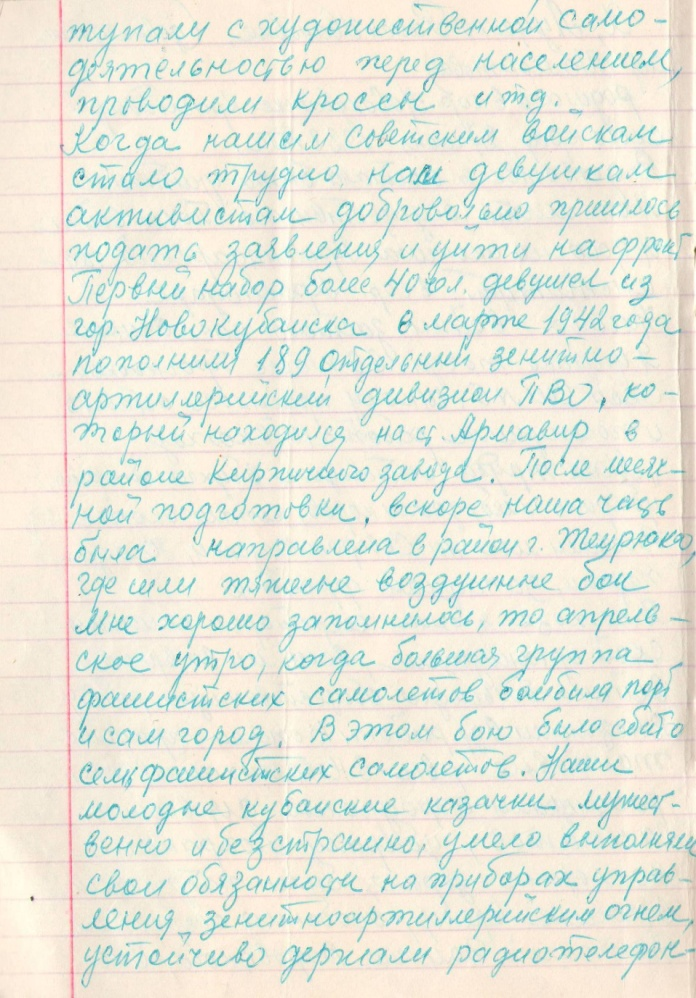 тупали с художественной само-
деятельностью перед населением,
проводили кроссы и т.д.
Когда нашим Советским войскам
стало трудно, нам девушкам
активистам добровольно пришлось
подать заявления и уйти на фронт
Первый набор более 40 чел. девушек из
гор. Новокубанска в марте 1942 года
пополнили 189 отдельный зенитно-
артиллерийский дивизион ПВО, ко-
торый находился на ст. Армавир в
районе Кирпичного завода. После месяч-
ной подготовки, вскоре наша часть
была направлена в район г. Темрюка,
где шли тяжелые воздушные бои
Мне хорошо запомнилось, то апрель-
ское утро, когда большая группа
фашистских самолетов бомбила порт
и сам город. В этом бою было сбито
семь фашистских самолетов. Наши
молодые кубанские казачки мужест-
венно и безстрашно, умело выполняли
свои обязанности на приборах управ-
ления зенитноартиллерийским огнем,
устойчиво держали радиотелефон-